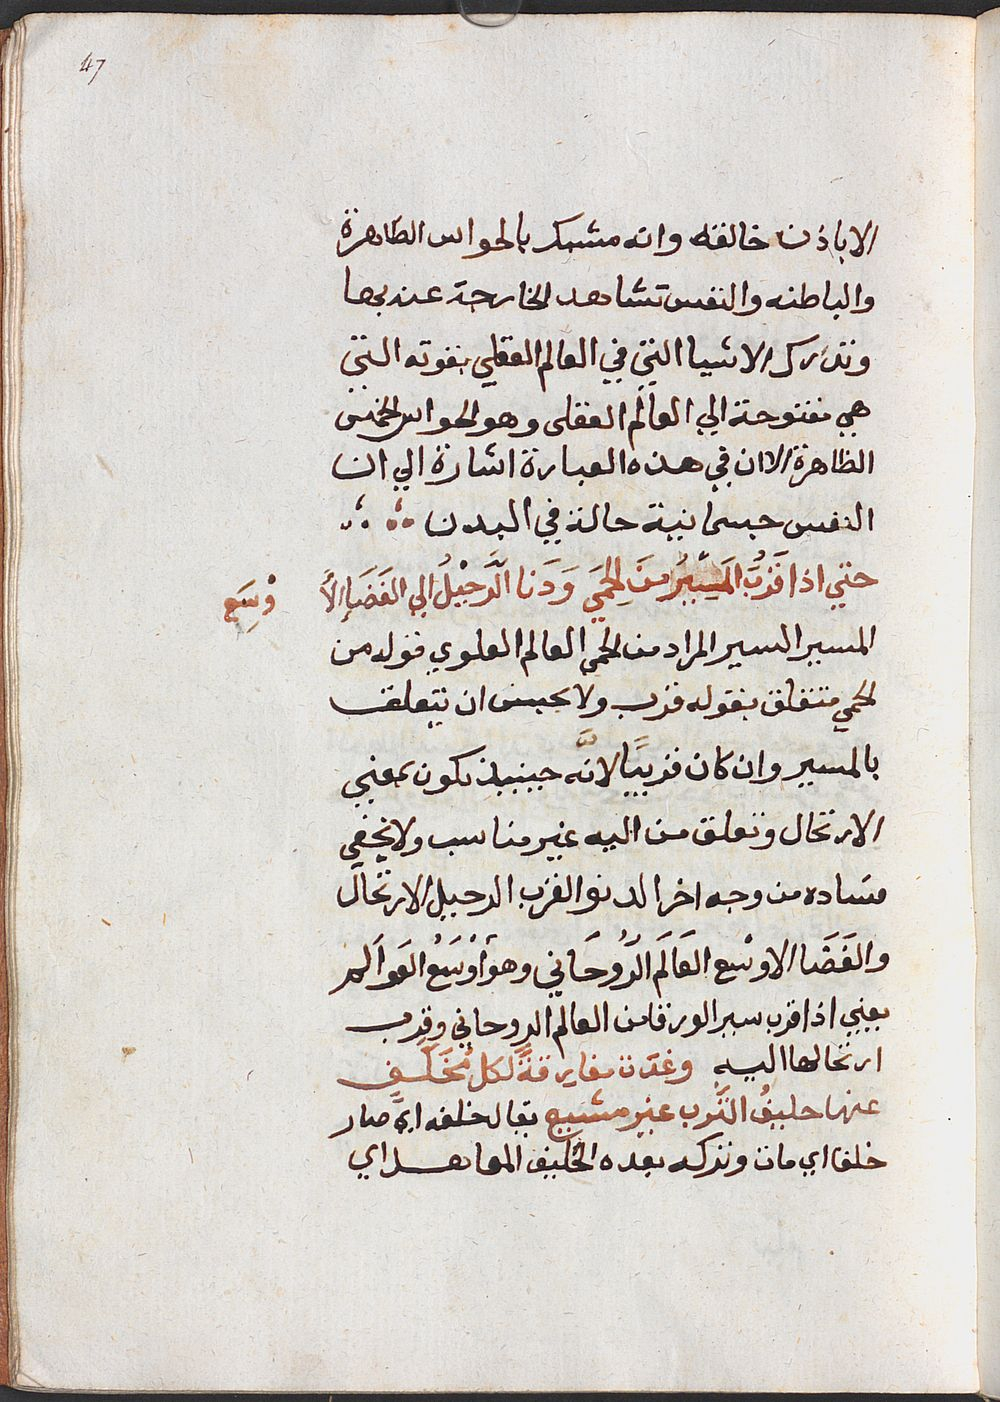 47
الا باذن خالقه وانه مشبك بالحواس الظاهرة
والباطنه والنفس تشاهد الخارجة عنه بها
وتدرك الاشيا التي في العالم العقلي بقوته التي
هي مفتوحة الي العالم العقلي وهو الحواس الخمس
الظاهرة الا ان في هذه العبارة اشارة الي ان
النفس جسمانية حالة في البدن
حتي اذا قَرُبَ المَسِيْرُ مِنَ الحِمَي وَدَنا الَّرحِيْلُ الي الفَضَاِ الاَوْسَعِ
المسير السير المراد من الحمي العالم العلوي فقوله من
الحمي متعلق بقوله قرب ولا يحسن ان يتعلق
بالمسير وان كان قريبًا لانّه حينيذ يكون بمعني
الارتحال وتعلق من اليه غير مناسب ولا يخفي
فساده من وجه اخر الدنو القرب الرحيل الارتحال
والفَضَا الاوسْع العَالَم الرُوحَاني وهو أوْسَعُ العَوالم
يعني اذا قرب سير الورقا من العالم الروحاني وقرب
ارتحالها اليه وغدت مفارقةً لكل مُخَلَّفٍ
عنها حليفُ التُّرب غير مشيع يقال خلفه اي صار
خلفا اي مات وتركه بعده الحليف المعاهد اي